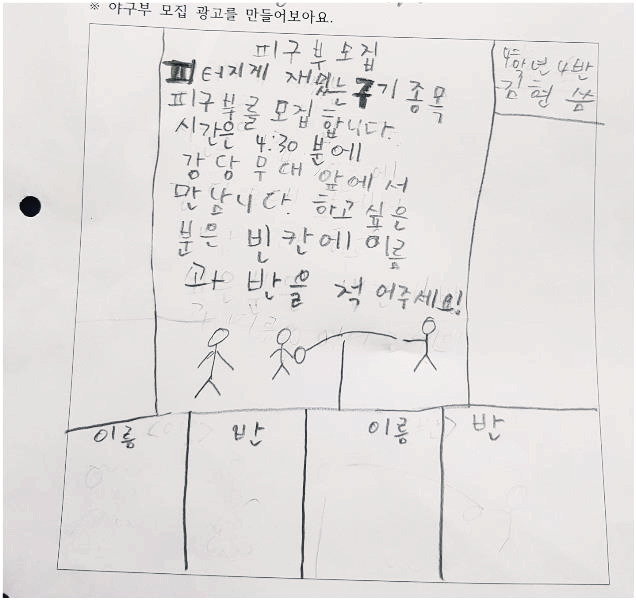 ※ 야구부 모집 광고를 만들어보아요.
피구부모집
피 터지게 재밌는 구기 종목
피구부를 모집합니다.
시간은 4:30 분에
강당 무대 앞에서
만납니다. 하고 싶은
분은 빈칸에 이름
과 반을 적어주세요!
4학년 4반
김현 씀
이름 반 이름 반